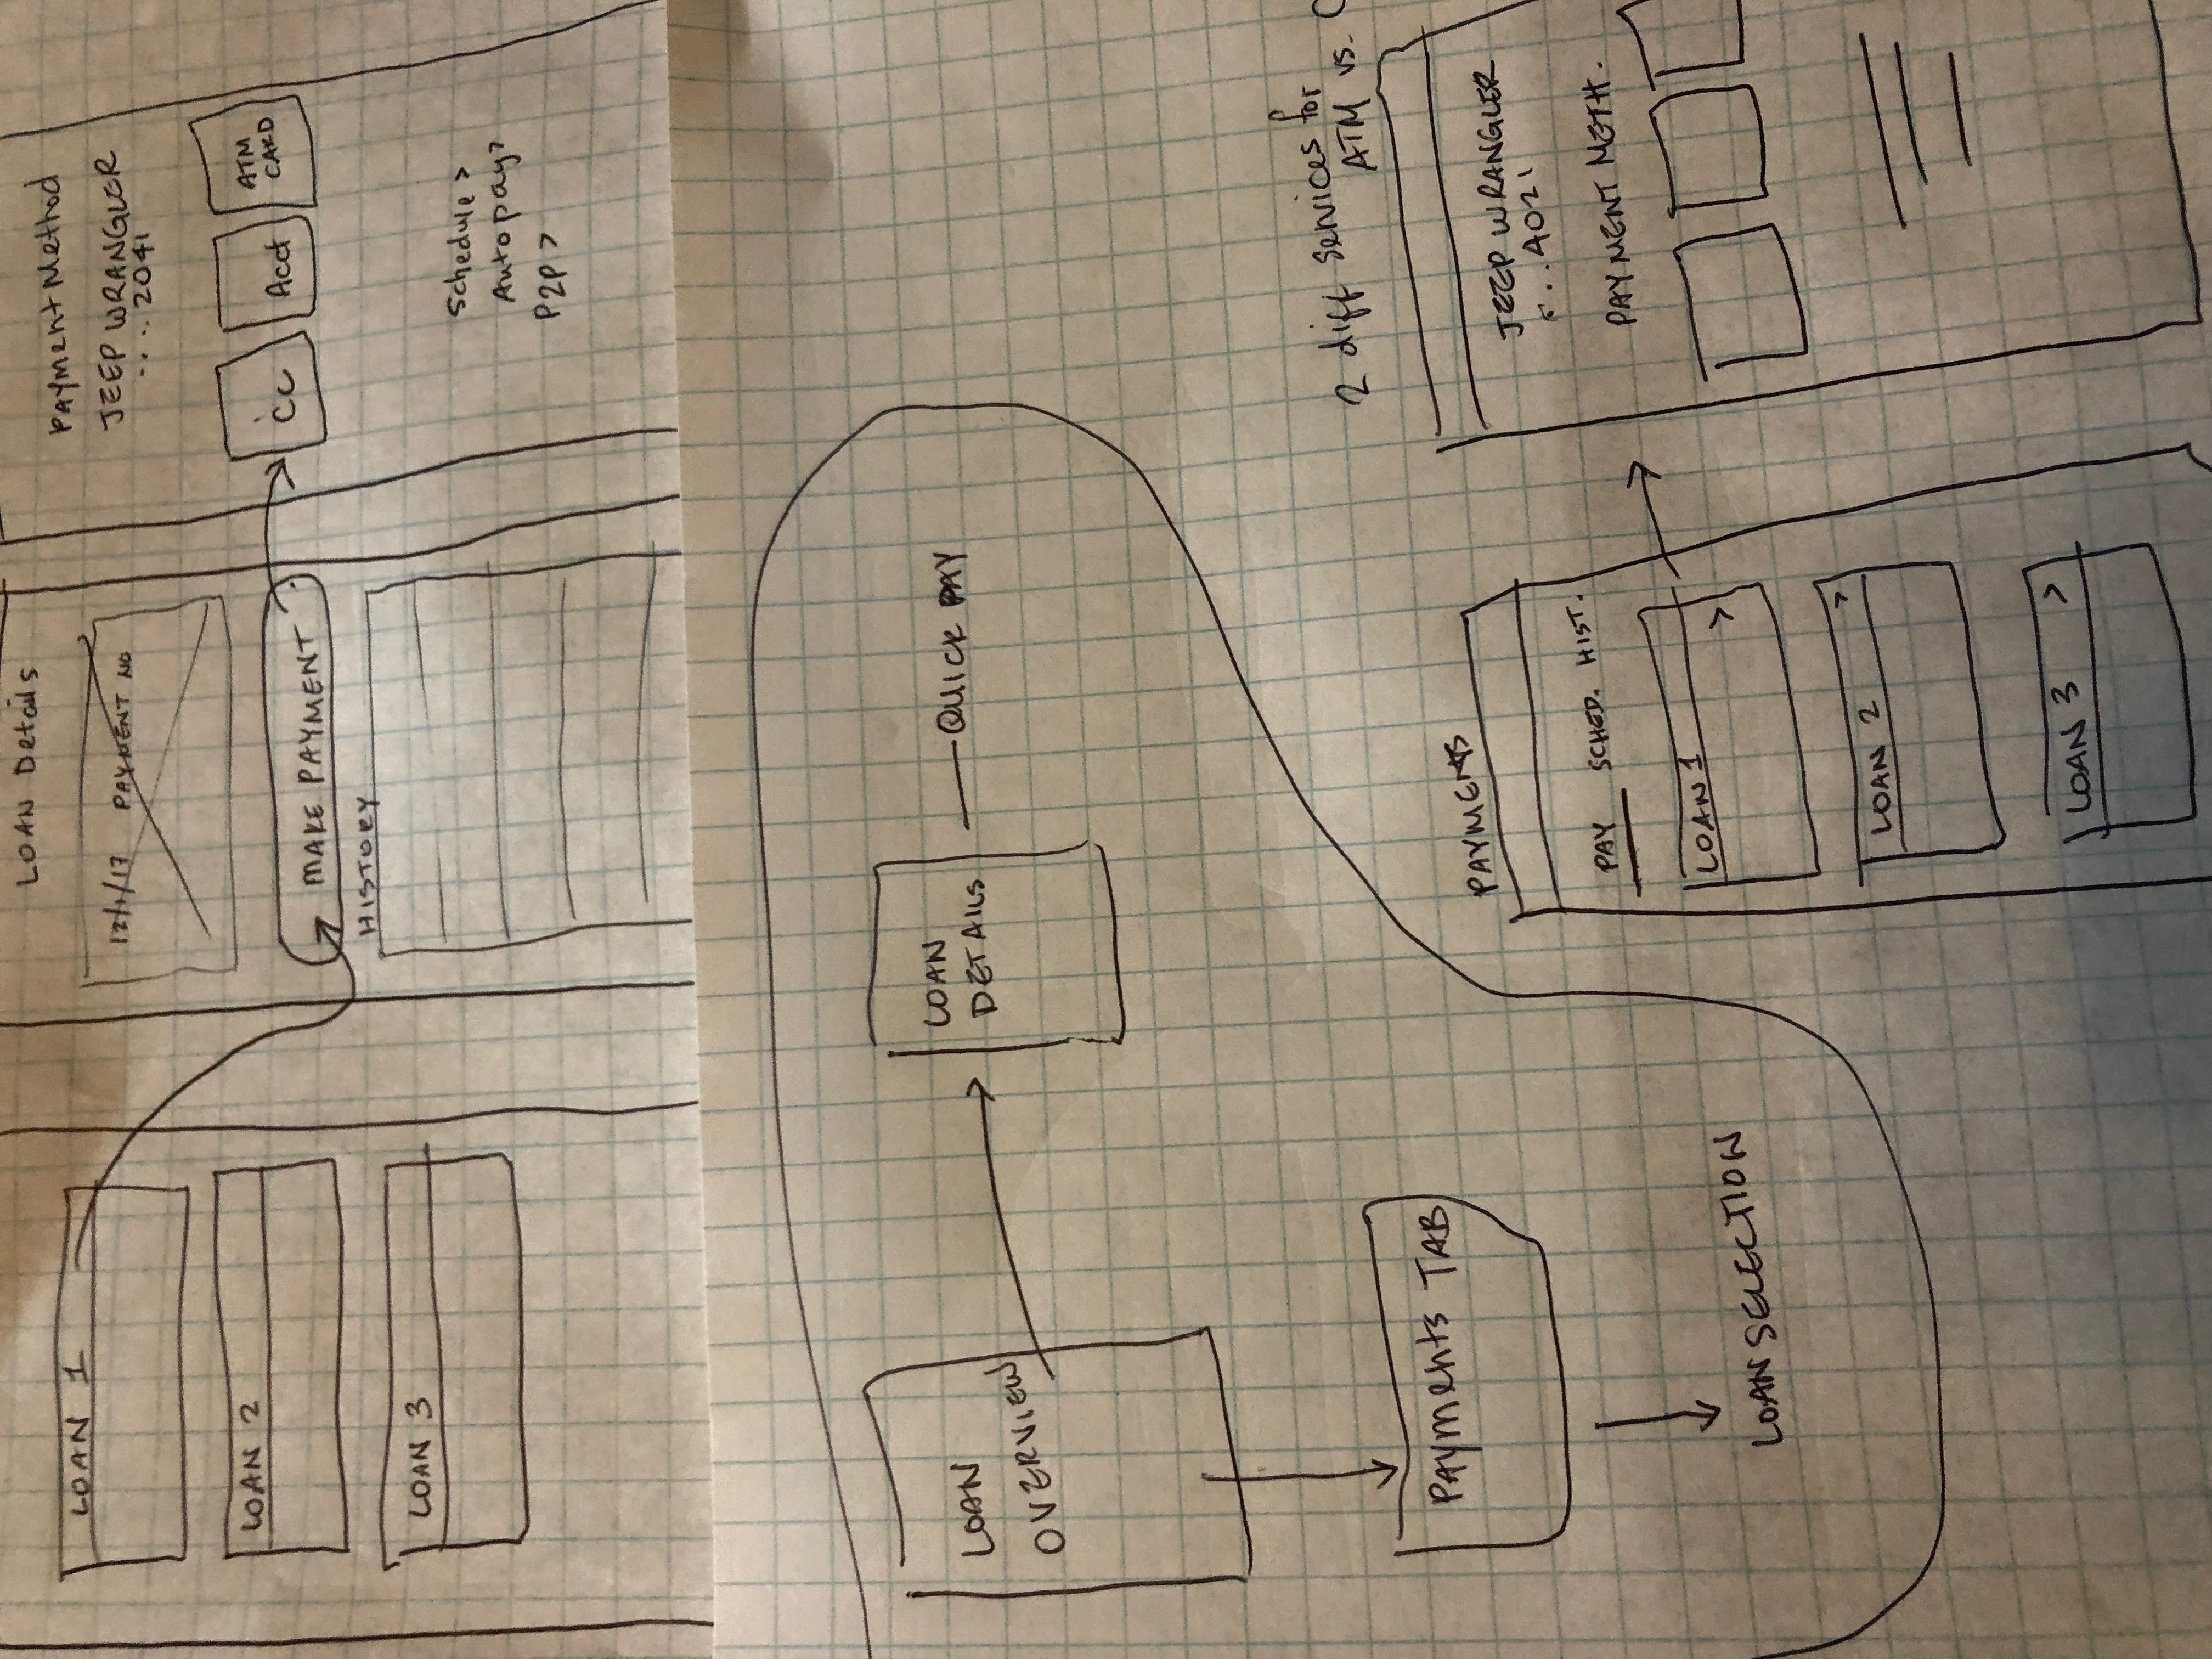 LOAN 1
LOAN 2
LOAN 3
LOAN Details
12/1/17 PAYMENT NO
MAKE PAYMENT
HISTORY
Payment Method
JEEP WRANGLER
....2041
CC
Acct
ATM
CARD
Schedule >
Autopay >
P2P >
LOAN
OVERVIEW
LOAN
DETAILS
QUICK PAY
PAYMENTS TAB
LOAN SELECTION
PAYMENTS
PAY SCHED. HIST.
LOAN 1 >
LOAN 2 >
LOAN 3 >
2 diff services for
ATM vs. C
JEEP WRANGLER
...4021
PAYMENT METH.